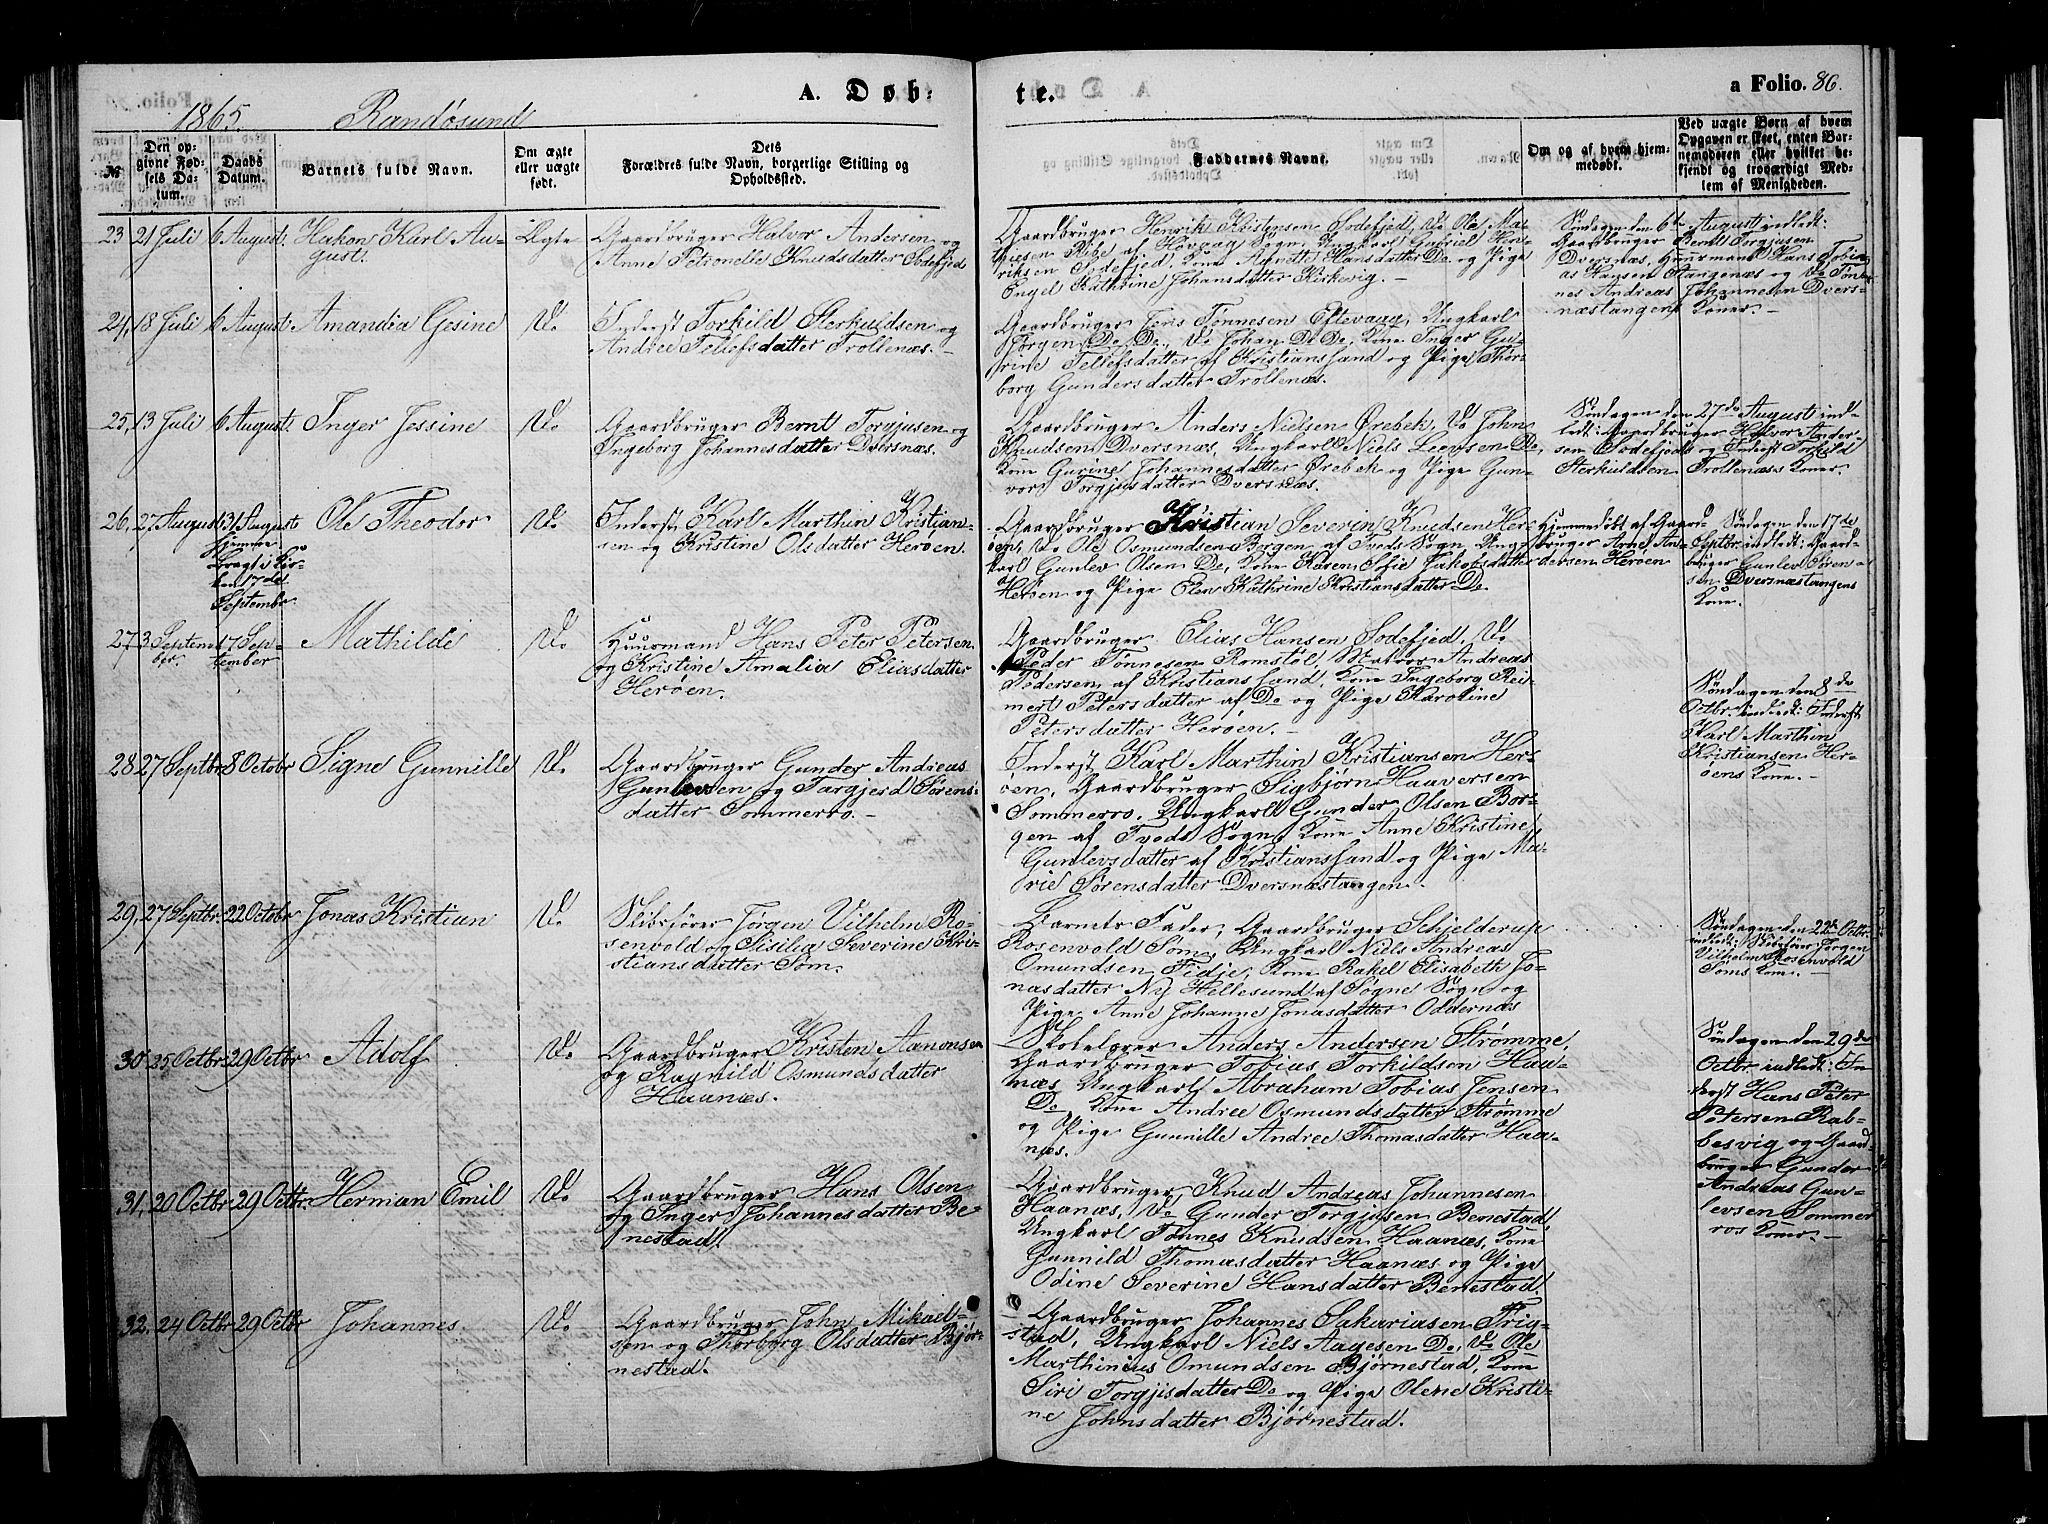 A. Døbte.
a Folio. 86.
1865. Randøsund
№
Den opgivne Fødsels Datum.
Daabs Datum.
Barnets fulde Navn.
Om ægte eller uægte født.
Dets Forældres fulde Navn, borgerlige Stilling og Opholdssted.
Faddernes Navne.
Om og af hvem hjemmedøbt.
Ved uægte Børn af hvem Opgaven er skeet, enten Barnemoderen eller hvilket bekjendt og troværdigt Medlem af Menigheden.
23 21 Juli 6 August. Hakon Karl Au-
gust.
Ægte
Gaardbruger Halvor Andersen og
Anne Petronelle Knudsdatter Sodefjed
Gaardbruger Henrik Kristensen Sodefjed, Do Ole Ma-
thiesen Rige af Høvaag Sogn, Ungkarl Gabriel Hen-
riksen Sodefjed, Kone Agnette Hansdatter Do og Pige
Engel Kathrine Johansdatter Kirkevig.-
Søndagen den 6te August indledt:
Gaardbruger Bernt Torgjusen
Dversnæs, Huusmand Hans Tobi-
as Hansen Stangenæs og Do Tøn-
nes Andreas Johannesen Dvers-
næstangens Koner.-
24, 18 Juli 6 August. Amandia Gesine
Do
Inderst Torkild Sterkuldsen og
Andree Tellefsdatter Trollenæs.-
Gaardbruger Jens Tønnesen Eftevaag, Ungkarl
Jørgen Do Do, Do Johan Do Do, Kone Inger Gu-
rine Tellefsdatter af Kristianssand og Pige Thor-
borg Gundersdatter Trollenæs.
25, 13 Juli 6 August. Inger Jessine
Do
Gaardbruger Bernt Torgjusen og
Ingeborg Johannesdatter Dversnæs.
Gaardbruger Anders Nielsen Ørebek, Do John
Knudsen Dversnæs, Ungkarl Niels Leevsen Do,
Kone Gurine Johannesdatter Ørebek og Pige Gun-
vor Torgjusdatter Dversnæs.
Søndagen den 27de August ind-
ledt: Gaardbruger Halvor Ander-
sen Sodefjeds og Inderst Torkild
Sterkuldsen Trollenæss Koner.
26, 27 August 31 August
hjemme
Bragt i Kir-
ken 17de
Septembr
Ole Theodor
Do
Inderst Karl Marthin Kristian-
sen og Kristine Olsdatter Herøen.
Gaardbruger Kristian Severin Knudsen Her-
øen, Do Ole Osmundsen Borgen af Tveds Sogn, Ung-
karl Gunlev Olsen Do, Kone Karen Sofie Jakobsdatter
Herøen og Pige Elen Kathrine Kristiansdatter Do
Hjemmedøbt af Gaard-
bruger Arne An-
dersen Herøen
Søndagen den 17de
Septbr. indledt: Gaard-
bruger Gunlev Søren-
sen Dversnæstangens
Kone.
27, 3 Septem-
ber.
17 Sep-
tember
Mathilde
Do
Huusmand Hans Peter Petersen
og Kristine Amalia Eliasdatter
Herøen.
Gaardbruger Elias Hansen Sodefjed, Do
Peder Tønnesen Romstøl, Matros Andreas
Pedersen af Kristianssand, Kone Ingeborg Rei-
mert Petersdatter af Do og Pige Karoline
Petersdatter Herøen.-
Søndagen den 8de
Octbr. indledt: Inderst
Karl Marthin
Kristiansen Her-
øens Kone.-
28 27 Septbr 8 Octobr Signe Gunnille
Do
Gaardbruger Gunder Andreas
Gunlevsen og Targjerd Sørens-
datter Sommerro.-
Inderst Karl Marthin Kristiansen Her-
øen, Gaardbruger Sigbjørn Haaversen
Sommerro, Ungkarl Gunder Olsen Bor-
gen af Tveds Sogn, Kone Anne Kristine
Gunlevsdatter af Kristianssand og Pige Ma-
rie Sørensdatter Dversnæstangen.
29, 27 Septbr. 22 Octobr Jonas Kristian
Do
Skibsfører Jørgen Vilhelm Ro-
senvold og Sisilia Severine Kri-
stiansdatter Søm.
Barnets Fader, Gaardbruger Schjelderup
Rosenvold Søm, Ungkarl Niels Andreas
Omundsen Fidje, Kone Rakel Elisabeth Jo-
nasdatter Ny Hellesund af Søgne Sogn og
Pige Anne Johanne Jonasdatter Oddernæs
Søndagen den 22de Octbr.
indledt: Skibsfører Jørgen
Vilhelm Rosenvold
Søms Kone.-
30 25 Octbr 29 Octbr Adolf
Do
Gaardbruger Kristen Aanonsen
og Ragnild Osmundsdatter
Haanæs.
Skolelærer Anders Andersen Strømme,
Gaardbruger Tobias Torkildsen Haa-
næs, Ungkarl Abraham Tobias Jensen
Do, Kone Andree Osmundsdatter Strømme
og Pige Gunnille Andree Thomasdatter Haa-
næs.
Søndagen den 29de
Octbr. indledt: In-
derst Hans Peter
Petersen Rab-
besvig og Gaard-
bruger Gunder
Andreas Gun-
levsen Sommer-
ros Koner.-
31, 20 Octbr 29 Octbr. Herman Emil
Do
Gaardbruger Hans Olsen
og Inger Johannesdatter Be-
nestad.
Gaardbruger Knud Andreas Johannesen
Haanæs, Do Gunder Torgjusen Benestad,
Ungkarl Tønnes Knudsen Haanæs, Kone
Gunnild Thomasdatter Haanæs og Pige
Odine Severine Hansdatter Benestad.
32. 24 Octbr 29 Octbr Johannes.
Do
Gaardbruger John Mikael-
sen og Thorborg Olsdatter Bjør-
nestad.
Gaardbruger Johannes Sakariasen Frig-
stad, Ungkarl Niels Aagesen Do, Do Ole
Marthinius Omundsen Bjørnestad, Kone
Siri Torgjisdatter Do og Pige Olene Kristi-
ne Johnsdatter Bjørnestad.